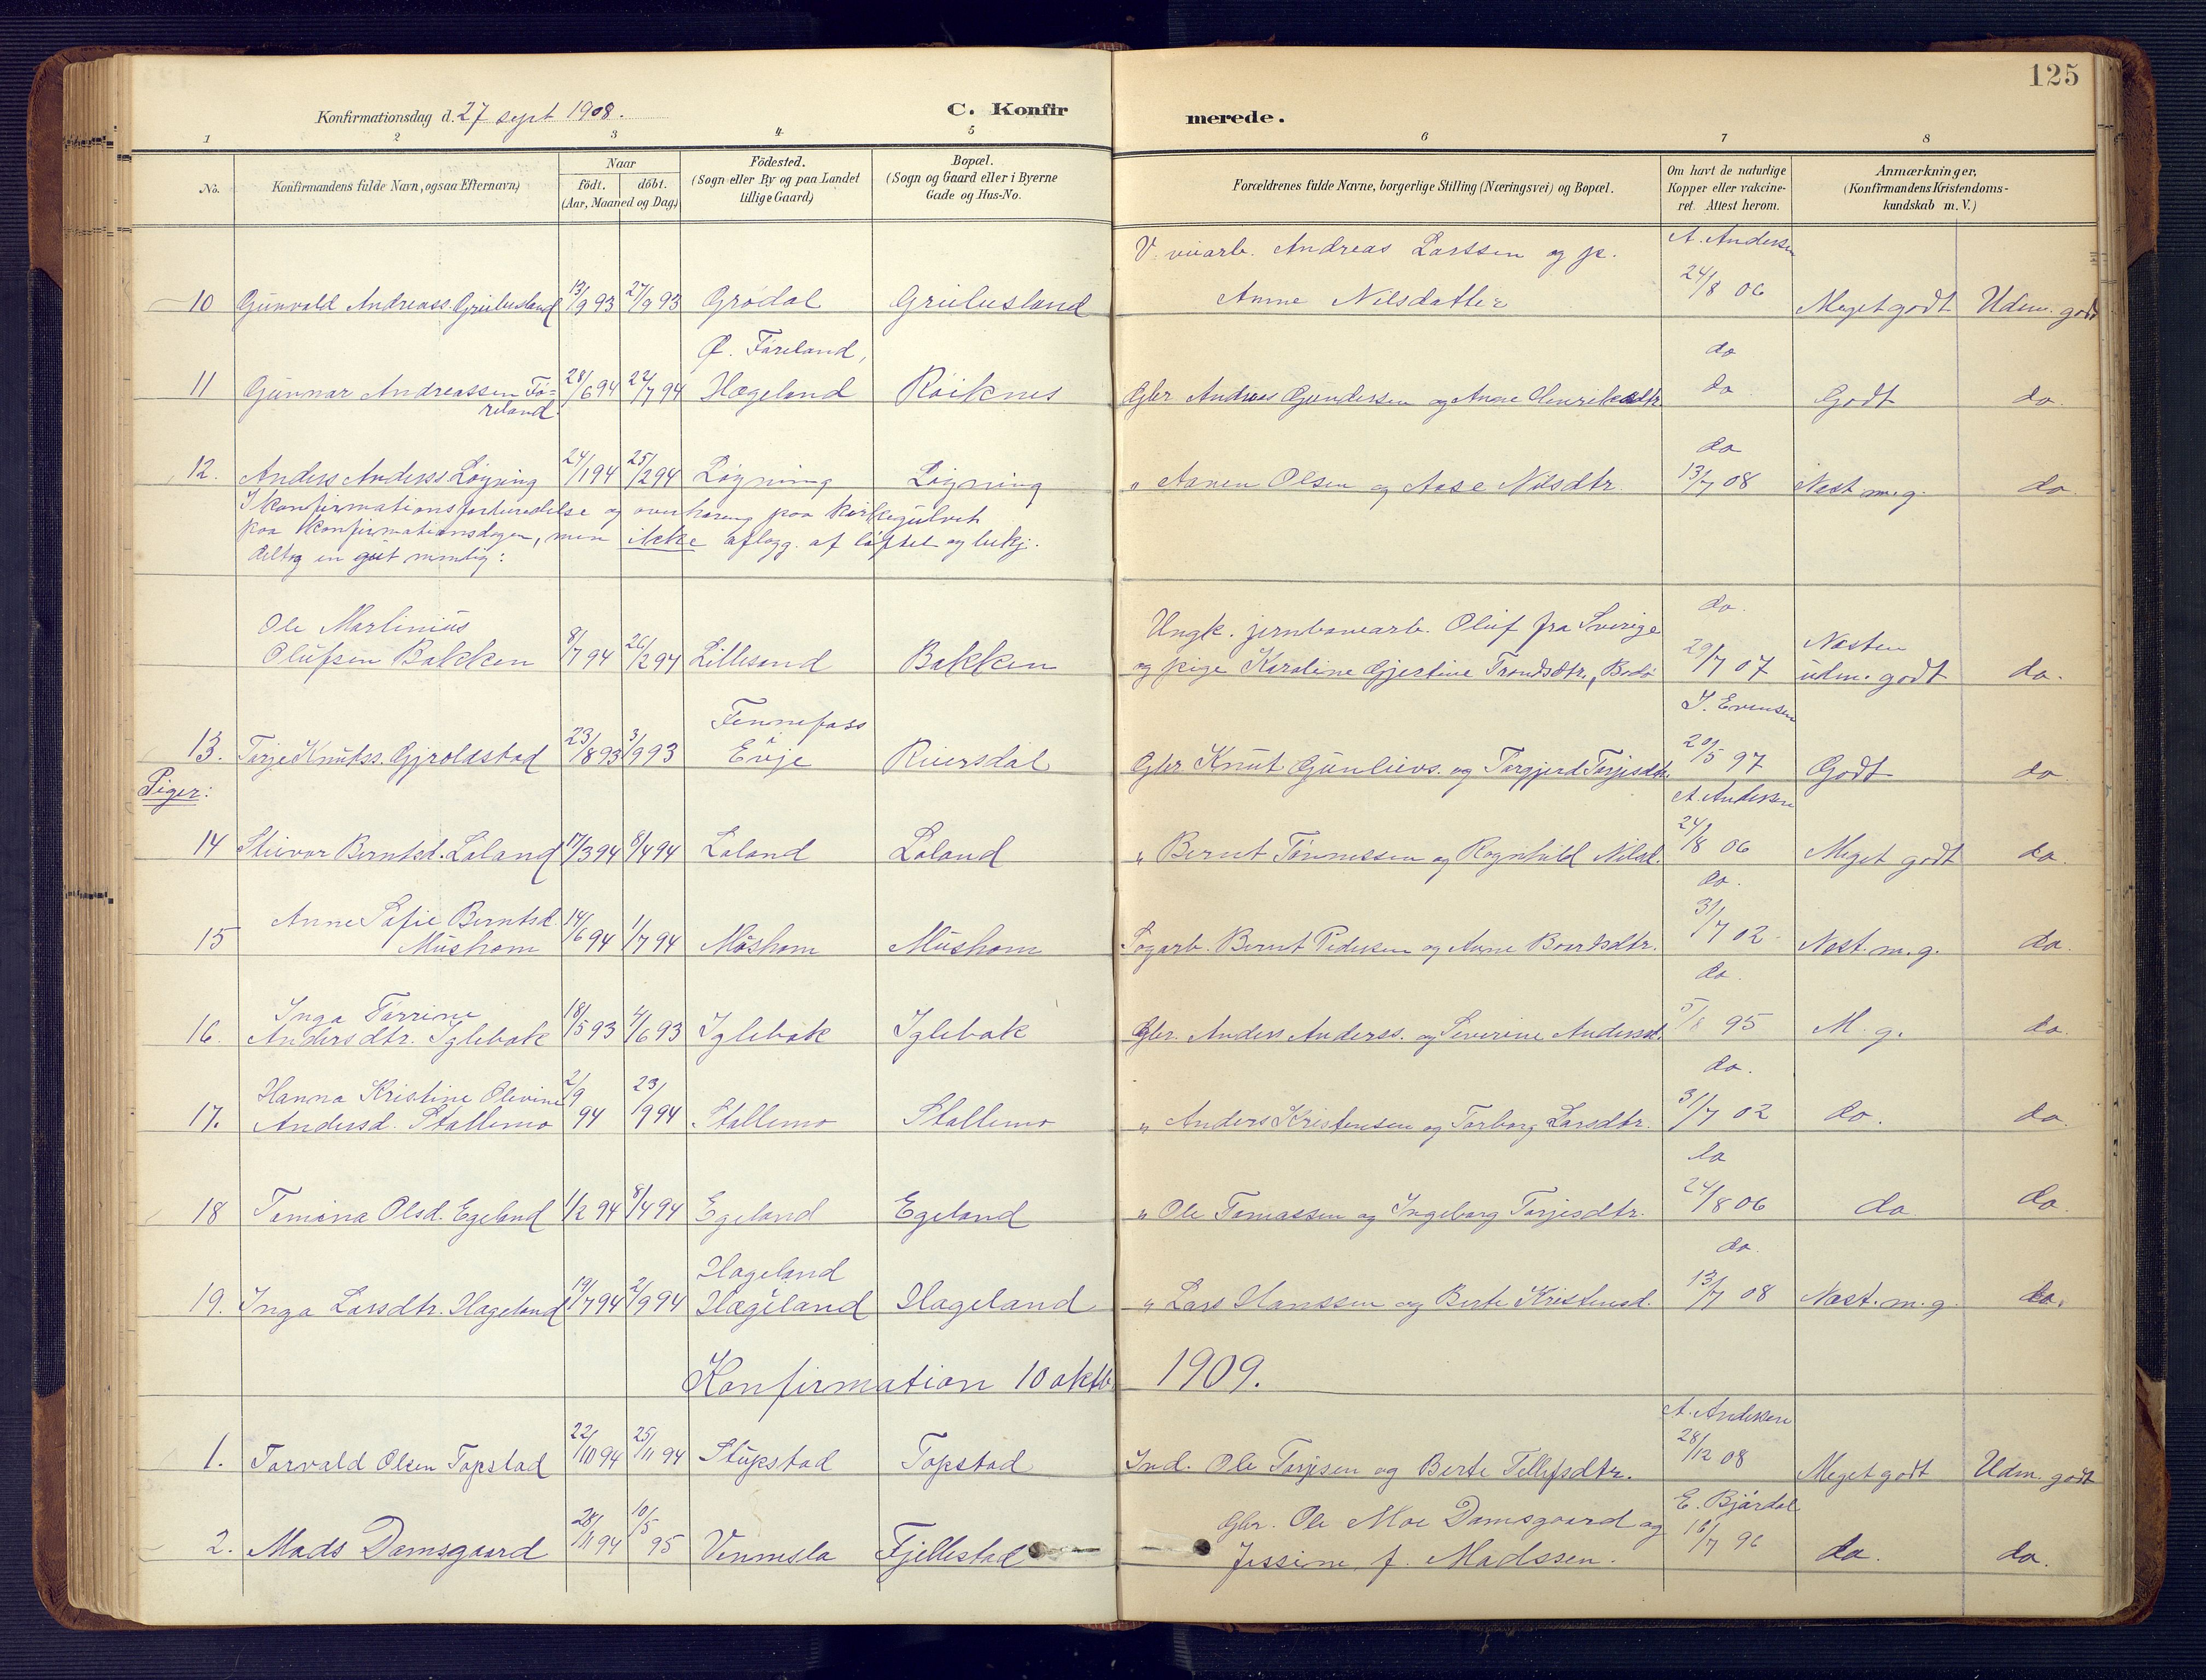 125
Konfirmationsdag d. 27 sept 1908.
C. Konfirmerede.
1 2 3 4 5 6 7 8
No.
Konfirmandens fulde Navn, ogsaa Efternavn)
Naar
födt. döbt.
(Aar, Maaned og Dag)
Födested.
(Sogn eller By og paa Landet
tillige Gaard)
Bopæl.
(Sogn og Gaard eller i Byerne
Gade og Hus-No.
Forældrenes fulde Navne, borgerlige Stilling (Næringsvei) og Bopæl.
Om havt de naturlige
Kopper eller vakcine-
ret. Attest herom.
Anmærkninger,
(Konfirmandens Kristendoms-
kundskab m. V.)
V. veiarb. Andreas Larssen og p. A. Andersen
10 Gunvald Andreass. Greibesland 13/9 93 27/9 93 Grödal Greibesland Anne Nilsdatter 24/8 06 Meget godt Udm. godt
Ø. Föreland, do
11 Gunnar Andreassen Fö- 28/6 94 22/7 94 Hægeland Röiknes Gbr Andreas Gundersen og Anne Henriksdtr do Godt do.
reland
do
12. Anders Anderss Lögning 24/1 94 25/2 94 Lögning Lögning " Aanen Olsen og Aase Nilsdtr. 13/7 08 Næst m.g. do.
I konfirmationsforberedelse og overhöring paa kirkegulvet
paa konfirmationsdagen, men ikke aflægg. af löftet og bekj.
deltog en gut nemlig:
Ole Martinius Ungk. jernbanearb. Oluf fra Sverige do.
Olufsen Bakken 8/7 94 26/2 94 Lillesand Bakken og pige Karoline Gjertine Trondsdtr., Bodö 29/7 07 Næsten udm. godt do.
Fennefoss J. Evensen
13. Tarje Knutss. Gjroldstad 23/8 93 3/9 93 i Evje Reiersdal Gbr Knut Gunleivs. og Torgjerd Tarjesdtr. 20/5 97 Godt do
Piger: A. Andersen
14 Steivor Berntsd. Loland 17/3 94 8/4 94 Loland Loland " Bernt Tönnessen og Ragnhild Nilsd. 24/8 06 Meget godt do.
Anne Sofie Berntsd. do.
15 Mushom 14/6 94 1/7 94 Mushom Mushom Sagarb. Bernt Pedersen og Anne Baardsdtr. 31/7 02 Næst. m. g. do.
Inga Torrine do.
16. Andersdtr. Iglebæk 18/5 93 4/6 93 Iglebæk Iglebæk Gbr. Anders Anderss. og Severine Andersd. 5/8 95 M. g. do.
Hanna Kristine Olivine do.
17. Andersd. Stallemo 2/9 94 23/9 94 Stallemo Stallemo " Anders Kristensen og Torborg Larsdtr. 31/7 02 do. do.
do
18 Tomina Olsd. Egeland 1/2 94 8/4 94 Egeland Egeland " Ole Tomassen og Ingeborg Tarjesdtr. 24/8 06 do do.
Hægeland do.
19. Inga Larsdtr. Hægeland 19/7 94 2/9 94 Hægeland Hægeland " Lars Hanssen og Berte Kristensd. 13/7 08 Næst. m. g. do.
Konfirmation 10 oktb. 1909.
A. Andersen
1. Torvald Olsen Topstad 22/10 94 25/11 94 Stupstad Topstad Ind. Ole Tarjesen og Berte Tellefsdtr. 28/12 08 Meget godt Udm. godt
Gbr. Ole Moe Damsgaard og E. Bjårdal
2. Mads Damsgaard 28/11 94 10/5 95 Vennesla Fjellestad Jessine f. Madssen. 16/7 96 do. do.